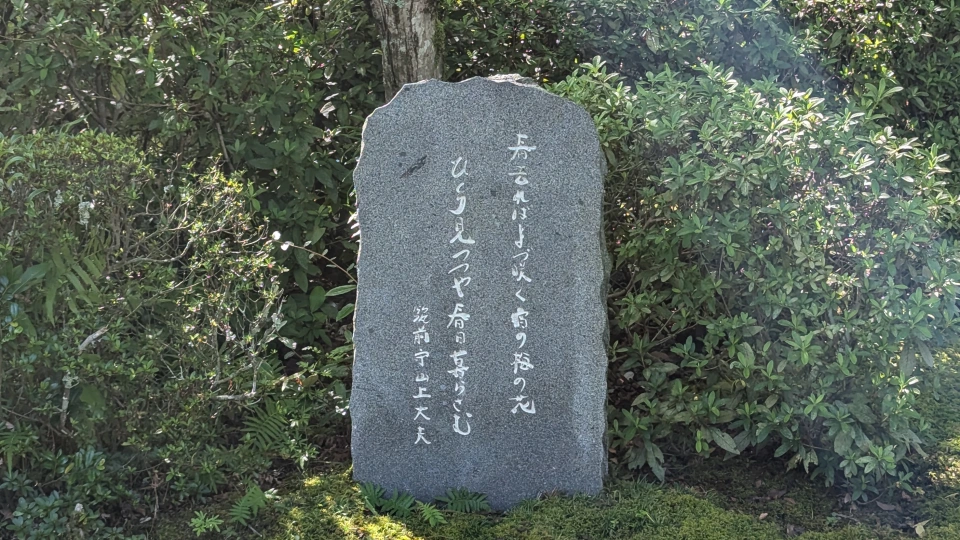 春さればまづ咲く宿の梅の花
ひとり見つつや春日暮らさむ
筑前守山上大夫